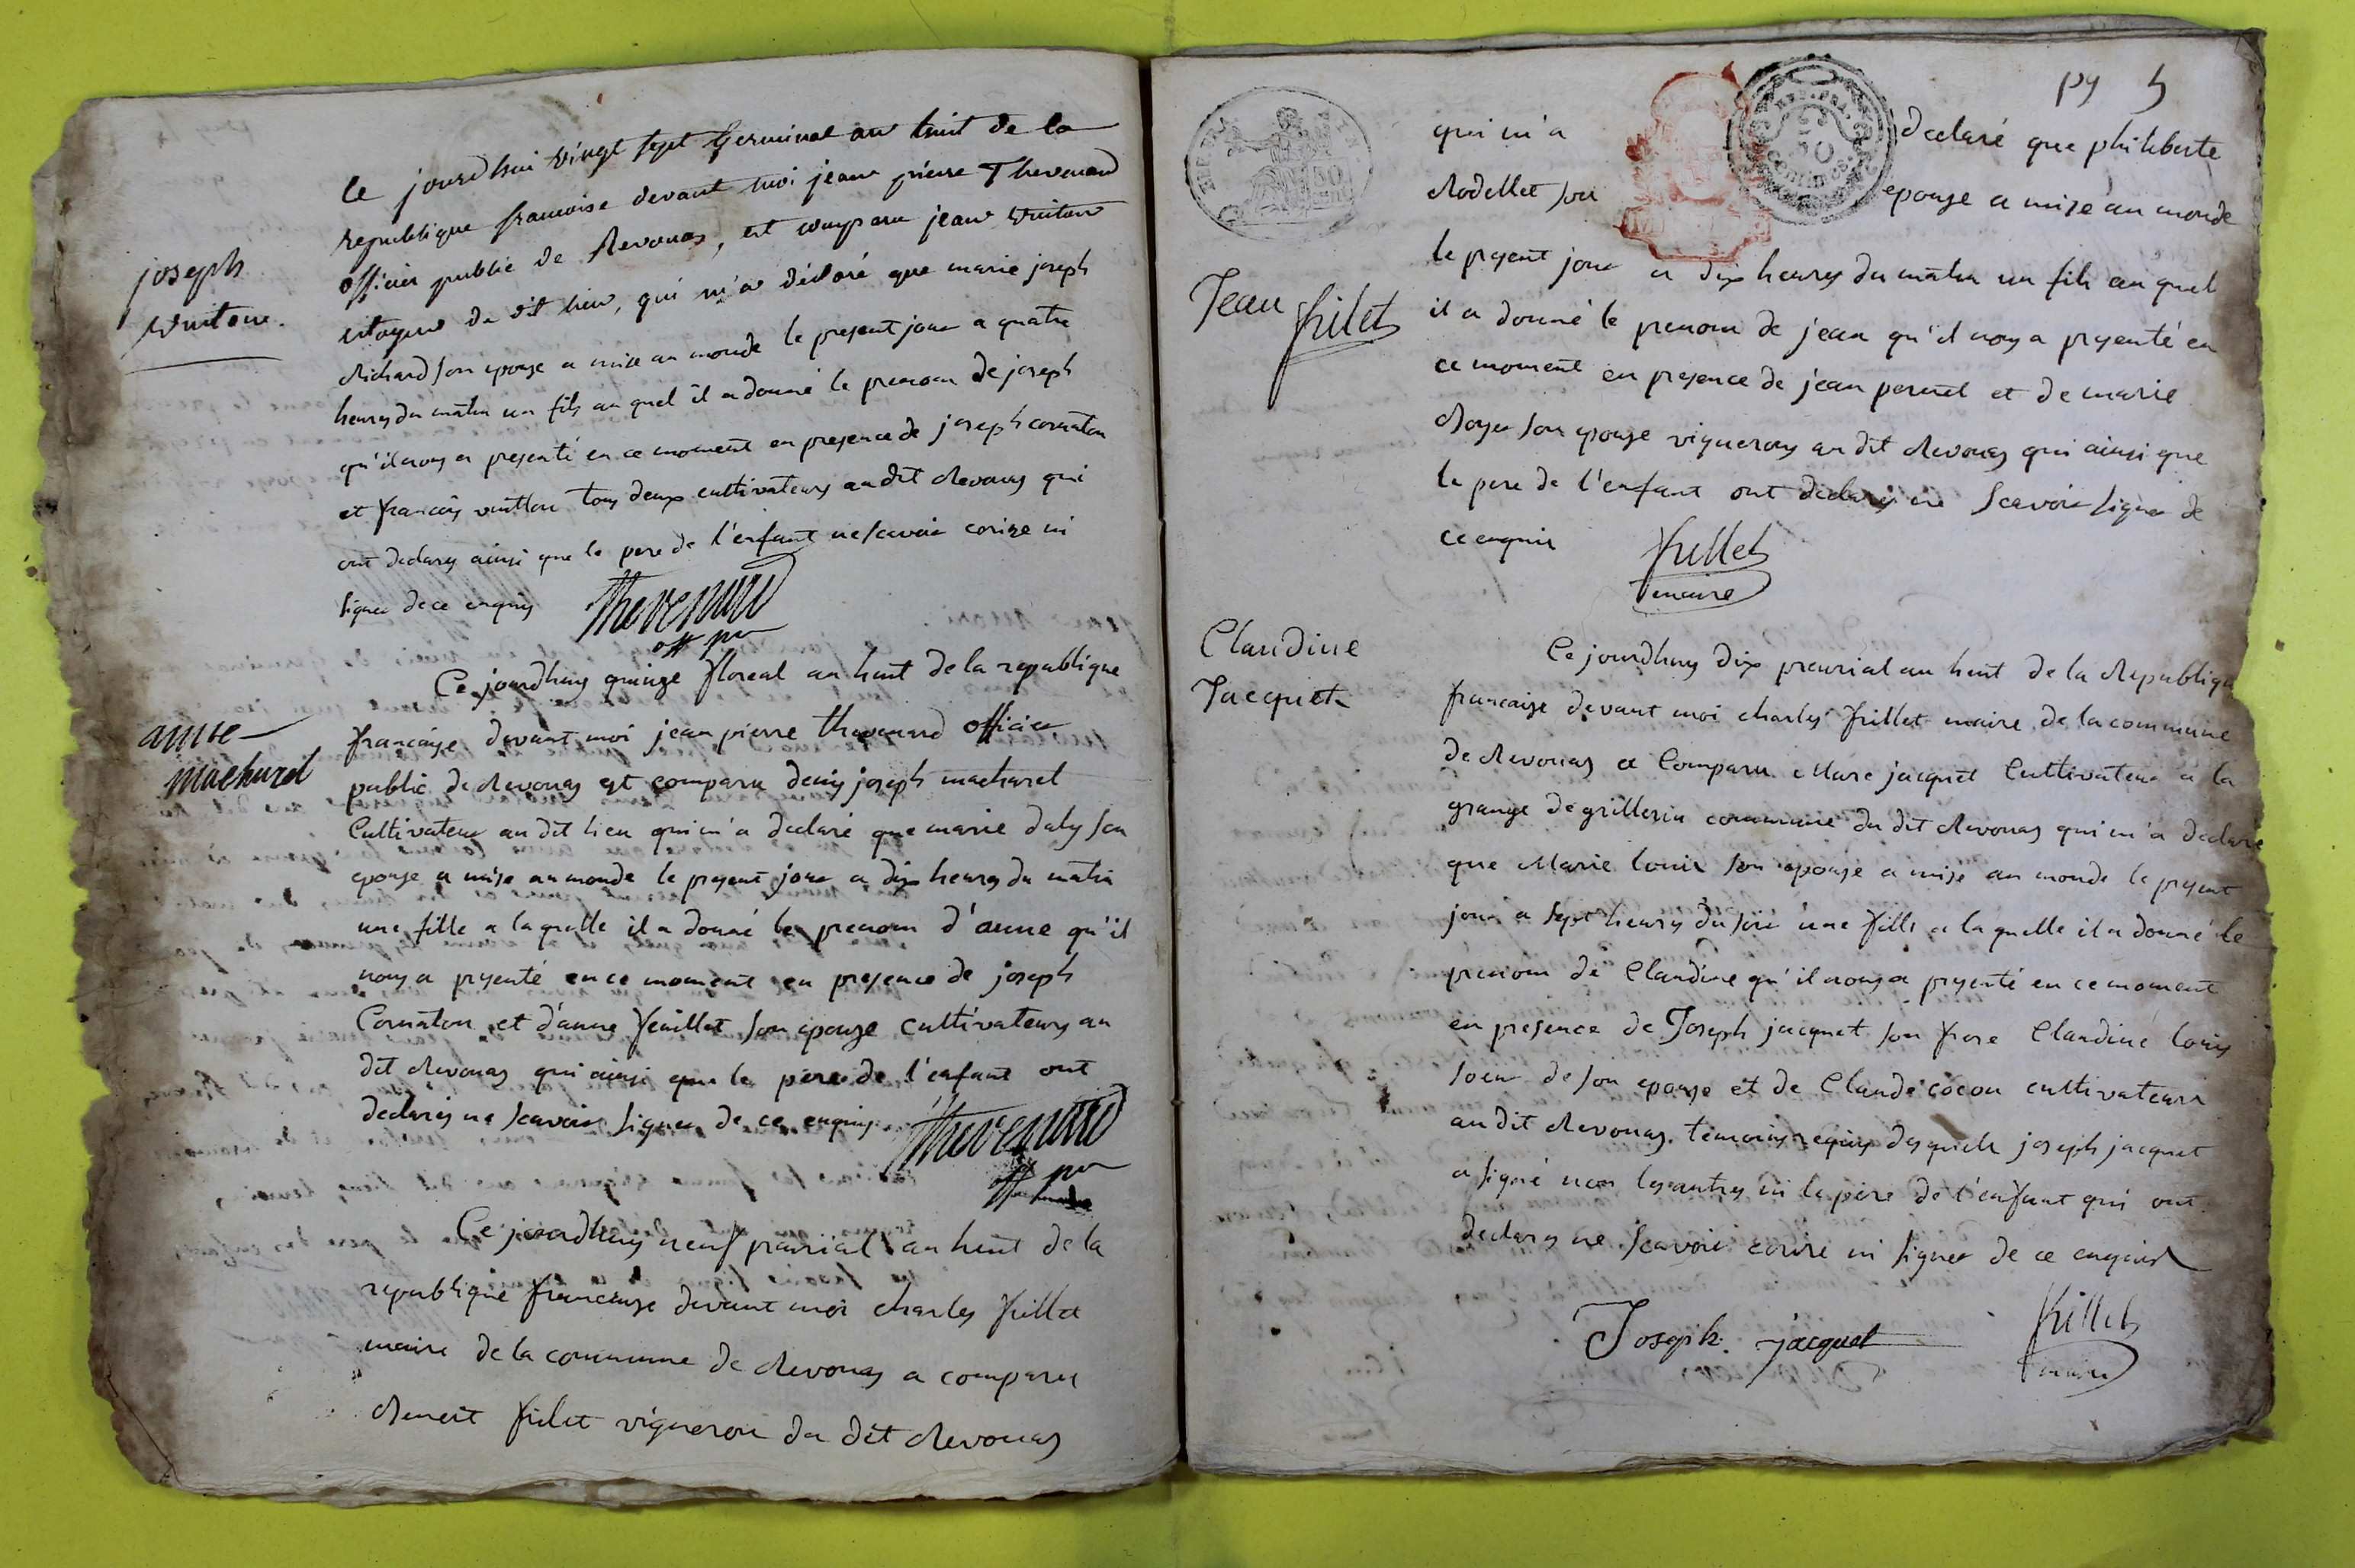 joseph
vuiton.
Ce jourdhui vingt sept Germinal an huit de la
republique francoise devant moi jean pierre Thevenard
officier public de Revonas, est comparu jean vuiton
citoyen du dit lieu, qui m'a déclaré que marie joseph
Richard son epouse a mise au monde le present jour a quatre
heures du matin un fils au quel il a donné le prenom de joseph
qu'il nous a presenté en ce moment en presence de joseph cornaton
et francois vuitton tous deux cultivateurs au dit Revonas qui
ont declarés ainsi que le pere de l'enfant ne scavoir ecrire ni
signer de ce enquis
Thevenard
off pu
anne
machurel
Ce jourdhuy quinze floreal an huit de la republique
francaise devant moi jean pierre thevenard officier
public de Revonas est comparu denis joseph machurel
Cultivateur au dit lieu qui m'a declaré que marie daly son
epouse a mise au monde le present jour a dix heures du matin
une fille a la quelle il a donné le prenom d'anne qu'il
nous a presenté en ce moment en presence de joseph
Cornaton et d'anne feuillet son epouse cultivateurs au
dit Revonas qui ainsi que le pere de l'enfant ont
declarés ne scavoir signer de ce enquis
Thevenard
off pu
Ce jourdhuy neuf prairial an huit de la
republique francaise devant moi charles frillet
maire de la commune de Revonas a comparu
Benoit frilet vigneron du dit Revonas
pg 5
REP. FRA.
50
centimes
Jean frilet
qui m'a declaré que philiberte
Rodellet son epouse a mise au monde
le present jour a dix heures du matin un fils au quel
il a donné le prenom de jean qu'il nous a presenté en
ce moment en presence de jean pernet et de marie
Royer son epouse vignerons au dit Revonas qui ainsi que
le pere de l'enfant ont declarés ne scavoir signer de
ce enquis
frillet
maire
Claudine
Jacquet
Ce jourdhuy dix prairial an huit de la Republique
francaise devant moi charles frillet maire de la commune
de Revonas a Comparu Marc jacquet Cultivateur a la
grange de grillerin commune du dit Revonas qui m'a declaré
que Marie louis son epouse a mise au monde le present
jour a sept heures du soir une fille a la quelle il a donné le
prenom de Claudine qu'il nous a presenté en ce moment
en presence de Joseph jacquet son frere Claudine louis
soeur de son epouse et de Claude cocon cultivateurs
au dit Revonas temoins requis desquels joseph jacquet
a signé non les autres ni le père de l'enfant qui ont
declarés ne scavoir ecrire ni signer de ce enquis
Joseph jacquet
frillet
maire